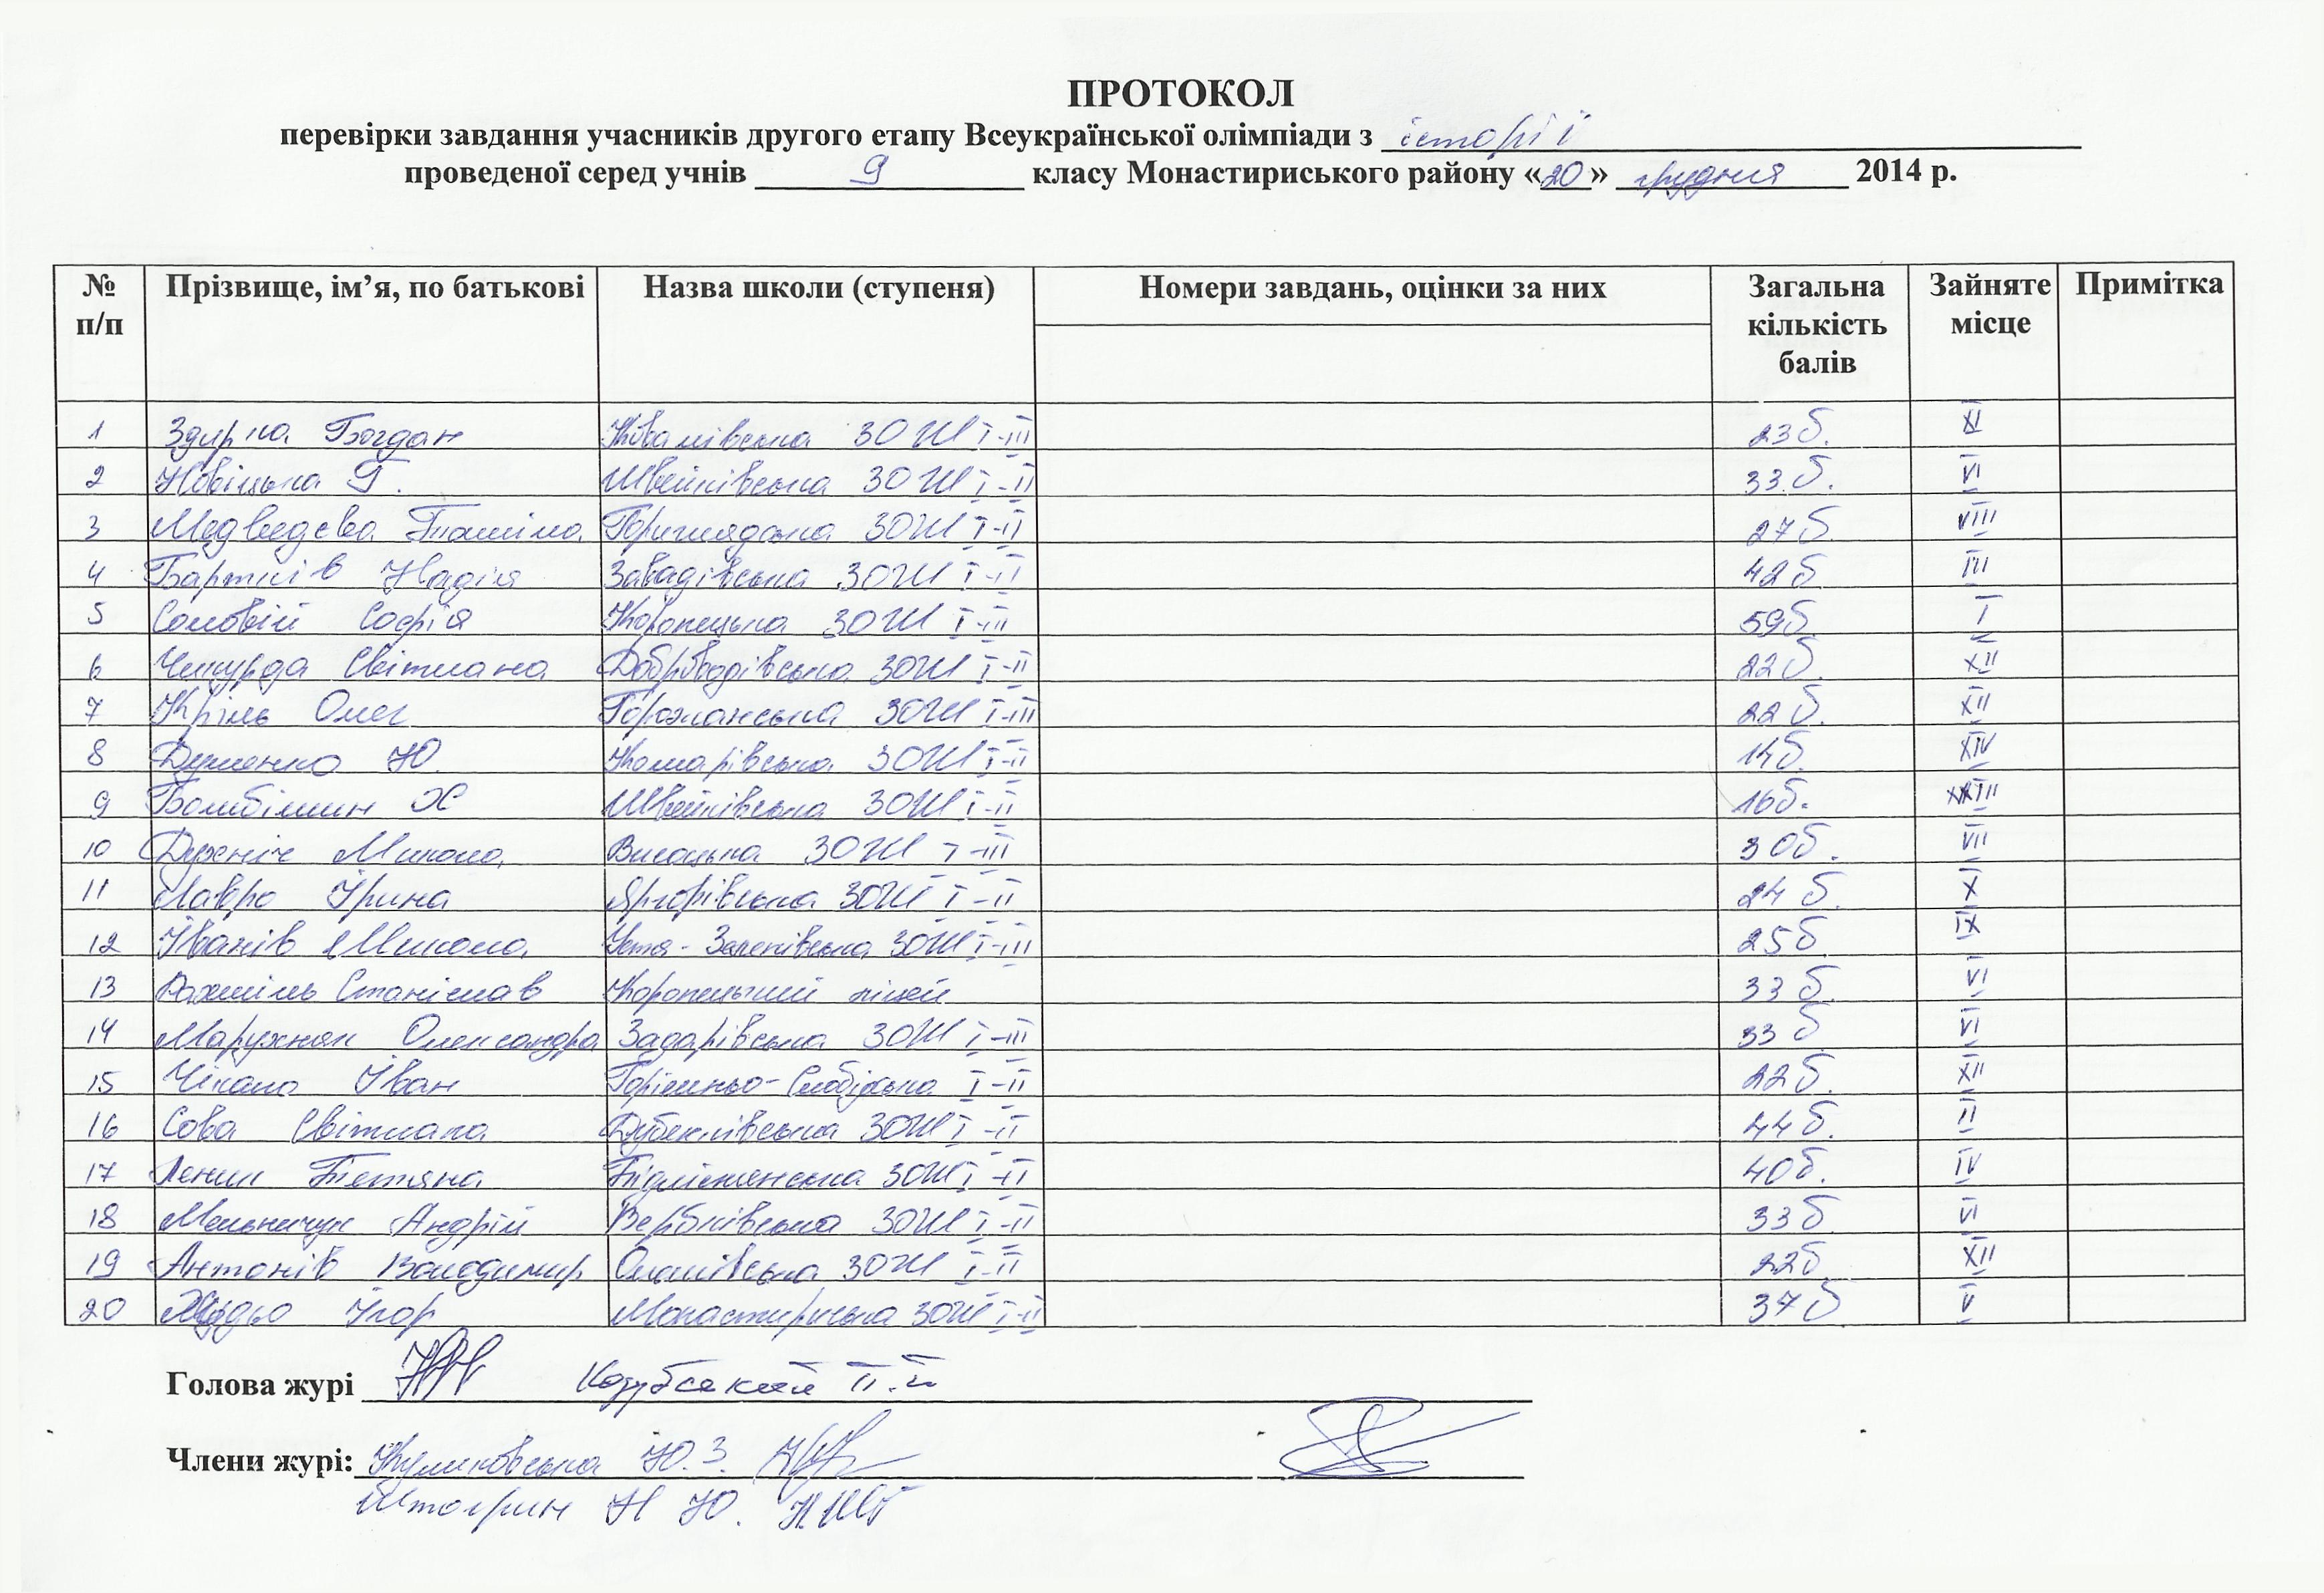 ПРОТОКОЛ
перевірки завдання учасників другого етапу Всеукраїнської олімпіади з історії
проведеної серед учнів 9 класу Монастириського району «20» грудня 2014 р.
№ п/п Прізвище, ім’я, по батькові Назва школи (ступеня) Номери завдань, оцінки за них Загальна кількість балів Зайняте місце Примітка
1 Богдан ЗОШ І-ІІІ 23б. XI
2 Новіцька Г. Швейківська ЗОШ І-ІІ 33б. VI
3 Медведєва Гориглядська ЗОШ І-ІІ 27б. VIII
4 Бартків Надія Завадівська ЗОШ І-ІІ 42б III
5 Соловій Софія Коропецька ЗОШ І-ІІІ 59б I
6 Світлана Доброводівська ЗОШ І-ІІ 22б. XII
7 Кріль Олег Горожанська ЗОШ І-ІІІ 22б. XII
8 Думенко Ю. Комарівська ЗОШ І-ІІ 14б. XIV
9 Швейківська ЗОШ І-ІІ 16б. XIII
10 Микола Висоцька ЗОШ І-ІІІ 30б. VII
11 Лавро Ірина Яргорівська ЗОШ І-ІІ 24б. X
12 Іванів Микола Устя-Зеленівська ЗОШ І-ІІІ 25б IX
13 Станіслав Коропецький ліцей 33б. VI
14 Марухняк Олександра Задарівська ЗОШ І-ІІІ 33б VI
15 Чікало Іван Горішньо-Слобідська І-ІІ 22б. XII
16 Сова Світлана Дубенківська ЗОШ І-ІІ 44б. II
17 Тетяна Підлісянська ЗОШ І-ІІ 40б. IV
18 Мельничук Андрій Вербківська ЗОШ І-ІІ 33б. VI
19 Антонів Володимир ЗОШ І-ІІ 22б. XII
20 Ігор Монастириська ЗОШ І-ІІІ 37б V
Голова журі Козубський
Члени журі: Куликовська Ю.З.
Штогрин Н Ю.